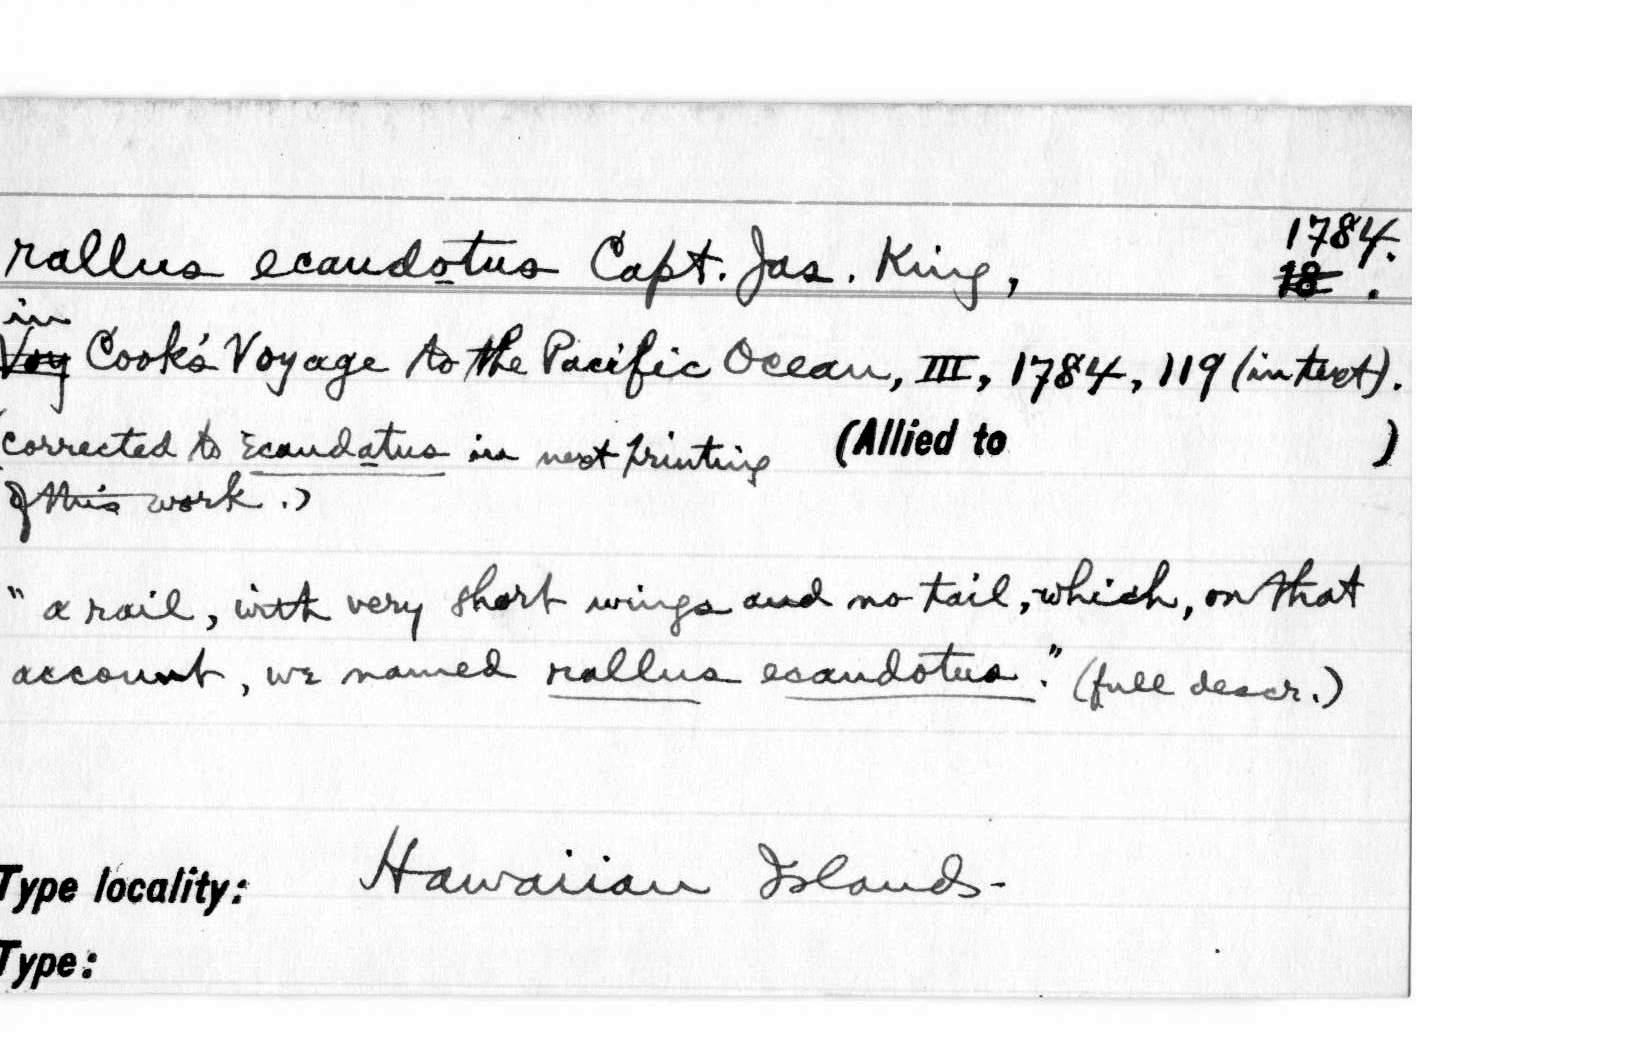 rallus ecaudotus Capt. Jas. King, 1784.
18 .
in
Voy Cook's Voyage to the Pacific Ocean, III, 1784, 119 (in text).
(corrected to Ecaudatus in next printing (Allied to )
of this work.)
" a rail, with very short wings and no tail, which, on that
account, we named rallus ecaudotus." (full descr.)
Type locality: Hawaiian Islands-
Type: